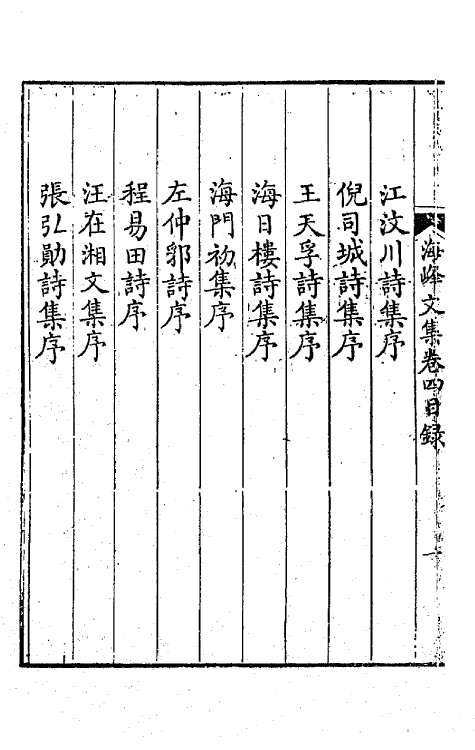 海峰文集卷四目録
一
江汶川詩集序
倪司城詩集序
王天孚詩集序
海日樓詩集序
海門初集序
左仲郛詩序
程易田詩序
汪在湘文集序
張弘勛詩集序